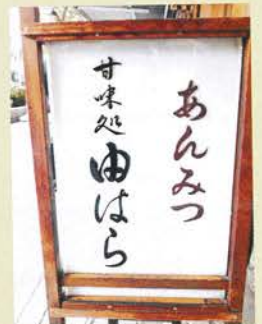 あんみつ
甘味処
由はら